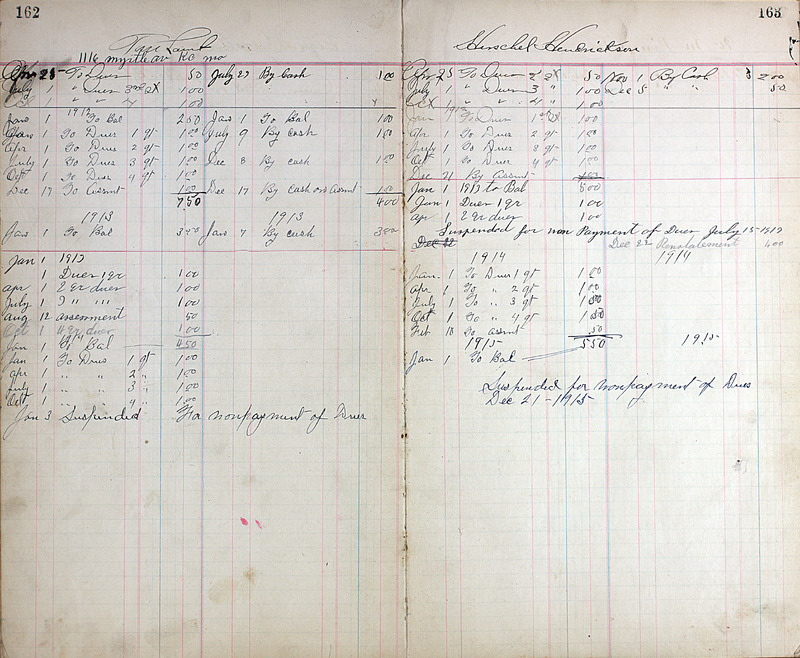 162
Tom Lamb
1116 myrtle av KC mo
Apr 25 To Dues 50 July 27 By Cash 100
July 1 " Dues 3rd 2X 100
Oct " " " 4 100
1912
Jan 1 To Bal 250 Jan 1 To Bal 100
Jan 1 To Dues 1 qt 100 July 9 By cash 100
Apr 1 To Dues 2 qt 100
July 1 To Dues 3 qt 100 Dec 8 By cash 100
Oct 1 To Dues 4 qt 100
Dec 17 To Assmt 100 Dec 17 By Cash on Assmt 100
750 400
1913 1913
Jan 1 To Bal 350 Jan 7 By cash 300
Jan 1 1913
1 Dues 1 qr 100
apr 1 2 qr dues 100
July 1 3 " " " 100
Aug 12 assessment 50
Oct 1 4 qr dues 100
1914
Jan 1 To Bal 450
Jan 1 To Dues 1 qt 100
apr 1 " " 2 " 100
July 1 " " 3 " 100
Oct 1 " " 4 " 100
Jan 3 Suspended For nonpayment of Dues
163
Herschel Hendrickson
Apr 25 To Dues 2 2X 50 Nov 1 By Cash $ 200
July 1 " Dues 3 " 100 Dec 5 " " 50
Oct " " 4 " 100
1912
Jan 1 To Dues 1 100
Apr 1 To Dues 2 qt 100
July 1 To Dues 3 qt 100
Oct 1 To Dues 4 qt 100
Dec 21 By Assmt 100
Jan 1 1913 to Bal 500
Jan 1 Dues 1 qr 100
apr 1 2 qr dues 100
Suspended for non Payment of Dues July 15-1913
Dec 22 Dec 22 Reinstatement 400
1914 1914
Jan 1 To Dues 1 qt 100
apr 1 To " 2 qt 100
July 1 To " 3 qt 100
Oct 1 To " 4 qt 100
Feb 18 To assmt .50
1915 550 1915
Jan 1 To Bal
Suspended for nonpayment of Dues
Dec 21-1915